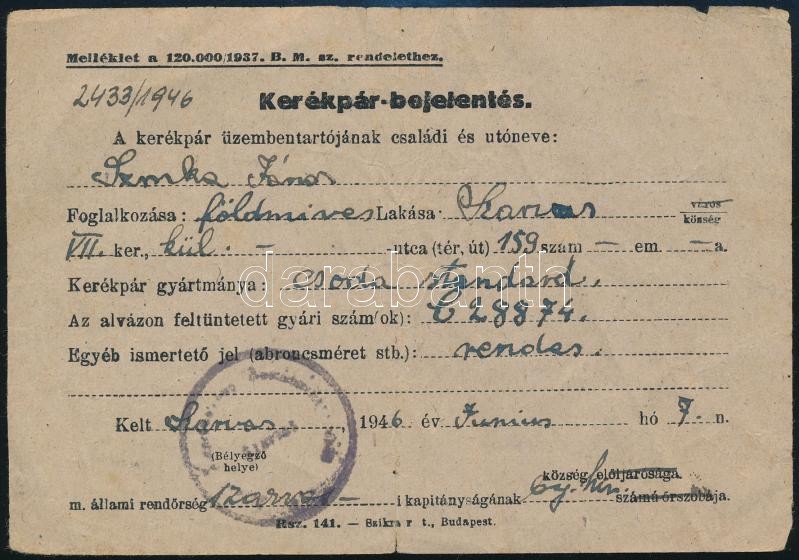 Melléklet a 120.000/1937. B. M. sz. rendelethez.
2433/1946
Kerékpár-bejelentés.
A kerékpár üzembentartójának családi és utóneve:
János
Foglalkozása: földmives Lakása Szarvas város község
VII. ker., kül. – -utca (tér, út) 159 szám – em. – a.
darabanth
Kerékpár gyártmánya: csoda standard.
Az alvázon feltüntetett gyári szám/ok): C 28874.
Egyéb ismertető jel (abroncsméret stb.): rendes.
Kelt Szarvas, 1946 év Junius hó 7. n.
(Bélyegző
helye)
község elöljárósága.
m. állami rendőrség Szarvas – i kapitányságának számú őrszobája.
Rsz. 141. — Szikra r t., Budapest.